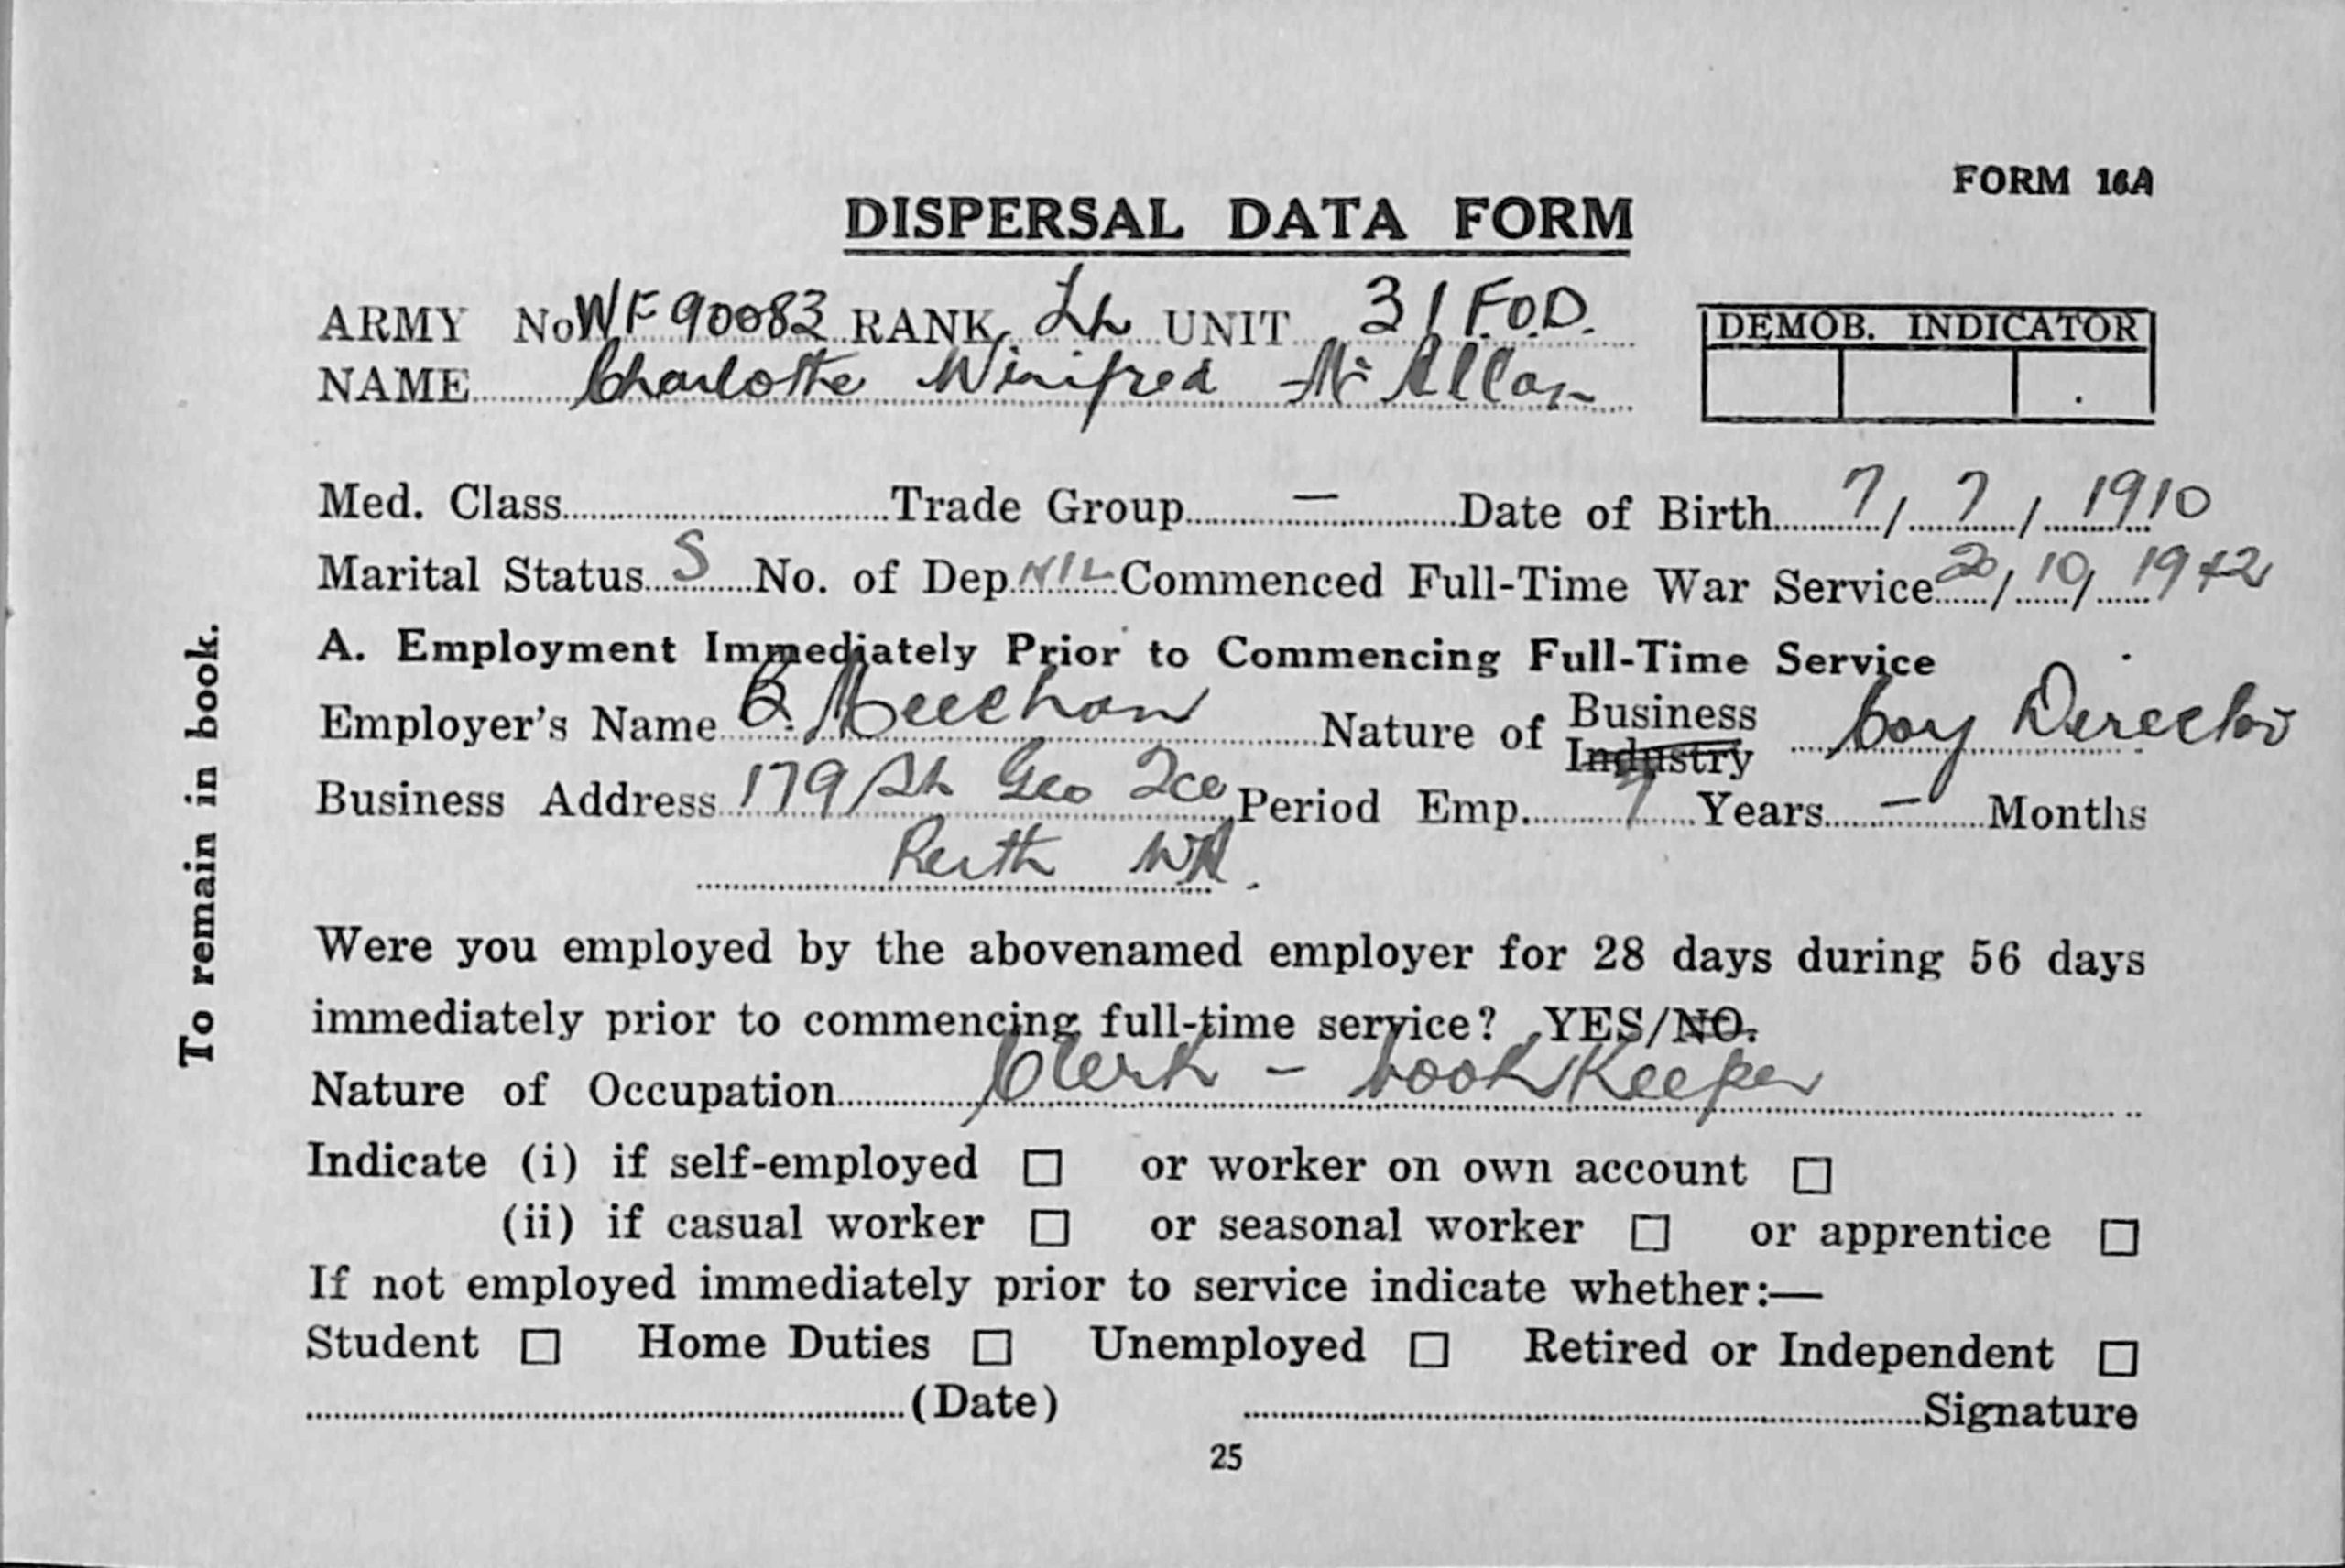 FORM 16A
DISPERSAL DATA FORM
ARMY No WF90083 RANK Lt UNIT 31 F.O.D.
DEMOB. INDICATOR
NAME Charlotte Winifred McAllan
Med. Class Trade Group — Date of Birth 7/7/1910
Marital Status S No. of Dep. NIL Commenced Full-Time War Service 20/10/1942
A. Employment Immediately Prior to Commencing Full-Time Service
Employer's Name Meechan Nature of Business Industry Coy Director
Business Address 179 St Geo Tce Period Emp. 7 Years — Months
Perth WA.
Were you employed by the abovenamed employer for 28 days during 56 days
immediately prior to commencing full-time service? YES/NO.
Nature of Occupation Clerk - bookKeeper
Indicate (i) if self-employed □ or worker on own account □
(ii) if casual worker □ or seasonal worker □ or apprentice □
If not employed immediately prior to service indicate whether:—
Student □ Home Duties □ Unemployed □ Retired or Independent □
(Date) Signature
25
To remain in book.